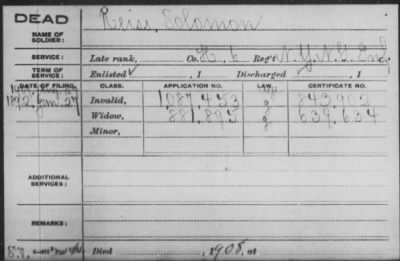 DEAD
NAME OF SOLDIER: Reiss, Solomon
SERVICE: Late rank, Co. E. 6 Reg't N.Y. N.G. Inf.
TERM OF SERVICE: Enlisted ✓ , 1 Discharged , 1
DATE OF FILING. CLASS. APPLICATION NO. LAW. CERTIFICATE NO.
1892, Jan. 27 Invalid, 1087.453 g 843.902
Widow, 881.895 g 639.634
Minor,
ADDITIONAL SERVICES:
REMARKS:
Died , 1908, at